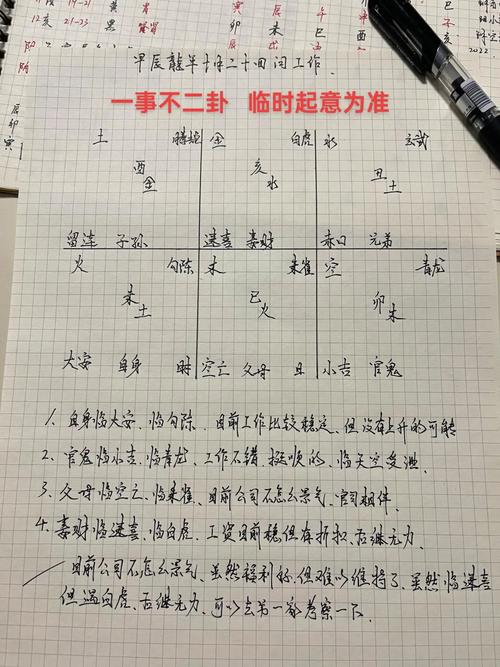 19-21 黄
12亥 21-23 黑
寅 卯 辰 未 午 巳 申
2022
辰 卯 寅
甲辰龍年十月二十四问工作.
一事不二卦 临时起意为准
土 螣蛇 金 白虎 水 玄武
酉金 亥水 丑土
留连 子孙 速喜 妻财 赤口 兄弟
火 勾陈 木 朱雀 空 青龙
未土 巳火 卯木
大安 自身 时 空亡 父母 日 小吉 官鬼
1. 自身临大安、临勾陈、目前工作比较稳定、但没有上升的可能
2、官鬼临小吉、临青龙、工作不错、挺顺的、临天空受泄.
3、父母临空亡、临朱雀、目前公司不怎么景气、官司相伴.
4、妻财临速喜、临白虎、工资目前稳但有折扣、后继无力.
目前公司不怎么景气、虽然福利称、但难以维持了、虽然临速喜
但遇白虎、后继无力、可以去另一家考察一下.